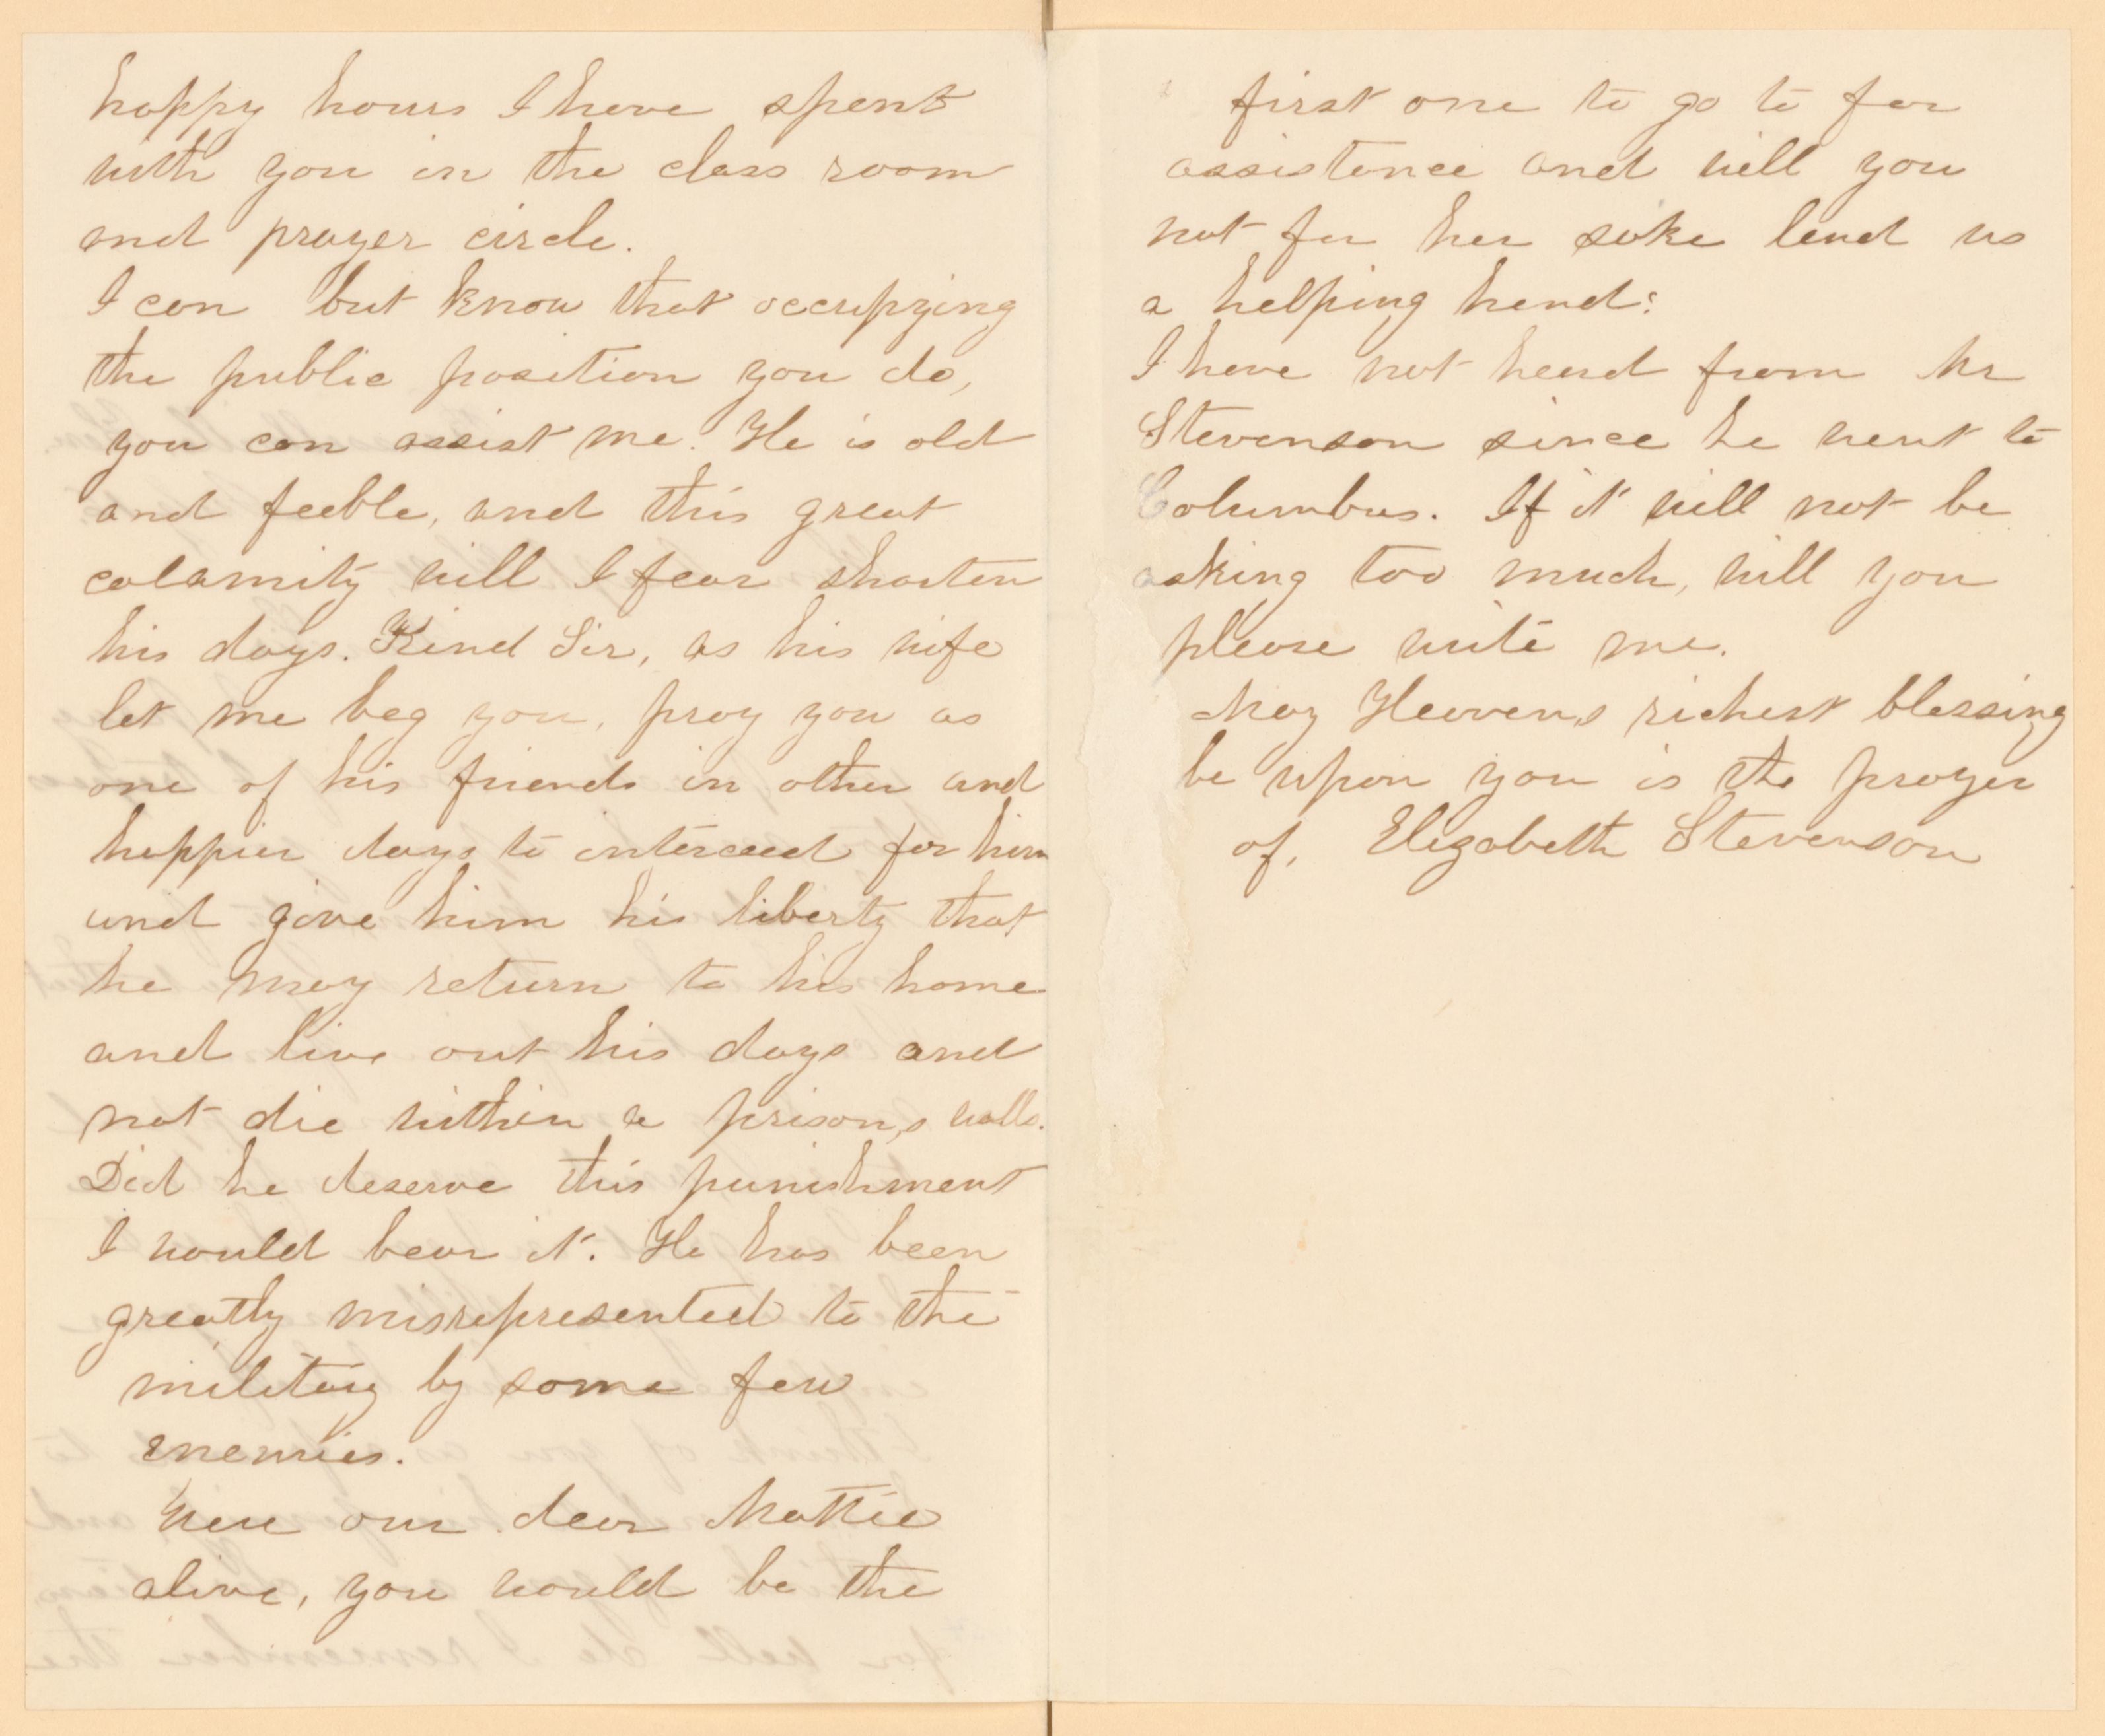 happy hours I have spent
with you in the class room
and prayer circle.
I can but know that occupying
the public position you do,
you can assist me. He is old
and feeble, and this great
calamity will I fear shorten
his days. Kind Sir, as his wife
let me beg you, pray you as
one of his friends in other and
happier days to interceed for him
and give him his liberty that
he may return to his home
and live out his days and
not die within a prison,s walls.
Did he deserve this punishment
I would bear it. He has been
greatly misrepresented to the
military by some few
enemies.
Were our dear Mattie
alive, you would be the
first one to go to for
assistance and will you
not for her sake lend us
a helping hand:
I have not heard from Mr
Stevenson since he went to
Columbus. If it will not be
asking too much, will you
please write me.
May Heaven,s richest blessing
be upon you is the prayer
of, Elizabeth Stevenson